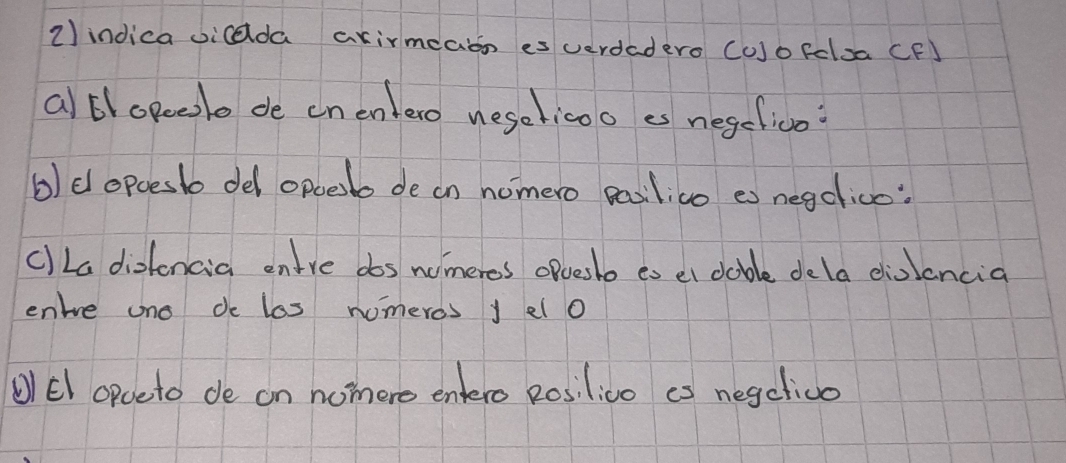 2) indica si cada afirmación es verdadero (v) o falsa (F)
a) El opuesto de un entero negativo es negativo:
b) el opuesto del opuesto de un número positivo es negativo:
c) La distancia entre dos números opuesto es el doble de la distancia
entre uno de los números y el 0
D) El opueto de un número entero positivo es negativo